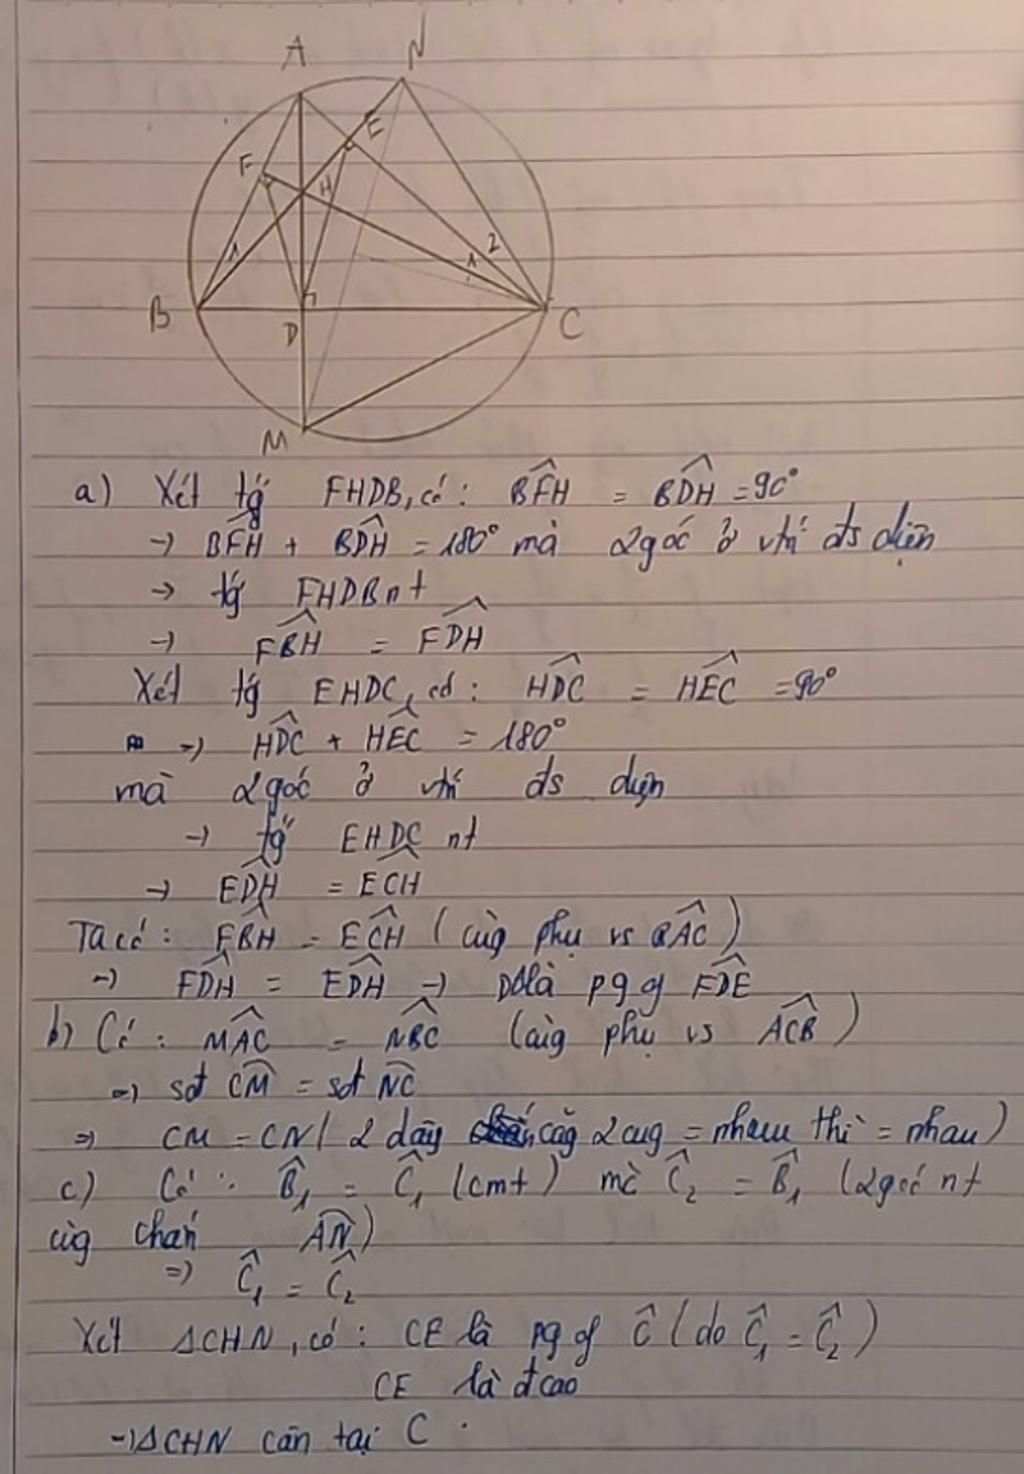 A
N
E
F
H
1
2
1
B
D
C
M
a) Xét tg FHDB, có: BFH = BDH = 90°
→ BFH + BDH = 180° mà 2 góc ở vtrí đs diện
→ tg FHDB nt
→ FBH = FDH
Xét tg EHDC, có: HDC = HEC = 90°
=) HDC + HEC = 180°
mà 2 góc ở vtrí đs diện
→ tg EHDC nt
→ EDH = ECH
Ta có: FBH = ECH (cùg phụ vs BAC)
→ FDH = EDH → DA là pg of FDE
b) Có: MAC = NBC (cùg phụ vs ACB)
=) sđt CM = sđt NC
=> CM = CN (2 dây căg 2 cug = nhau thì = nhau)
c) Có: B1 = C1 (cmt) mà C2 = B1 (2 góc nt
cùg chắn AN)
=) C1 = C2
Xét ΔCHN, có: CE là pg of C (do C1 = C2)
CE là đcao
→ ΔCHN cân tại C.